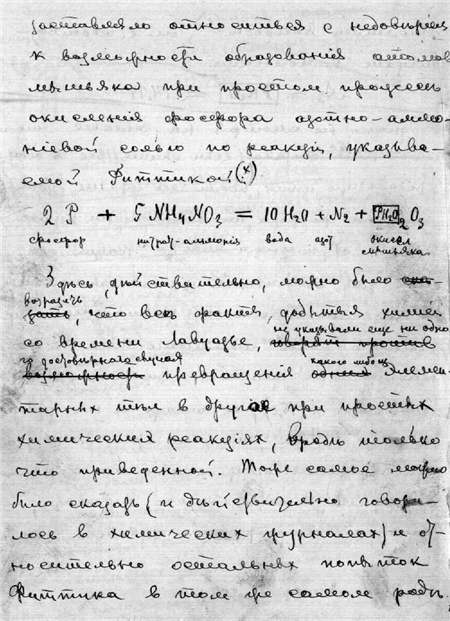 заставляло относиться с недовѣріемъ
к возможности образованія атомов
мышьяка при простом процессѣ
окисленія фосфора азотно-аммо-
ніевой солью по реакціи, указыва-
емой Фиттикой (х).
2 P + 5 NH4NO3 = 10 H2O + N2 + [PN2O]2O3
фосфор нитрат-аммонія вода азот окисел мышьяка
Здѣсь, дѣйствительно, можно было
возразить
что всѣ факты, добытыя химіей
не указывали еще ни одно-
со времени Лавуазье, говорят против
го достовѣрнаго случая какого либо
возможности превращенія одних элемен-
тарных тѣл в другое при простых
химических реакціях, вродѣ только
что приведенной. Тоже самое можно
было сказать (и дѣйствительно говори-
лось в химических журналах) и от-
носительно остальных попыток
Фиттика в том же самом родѣ.